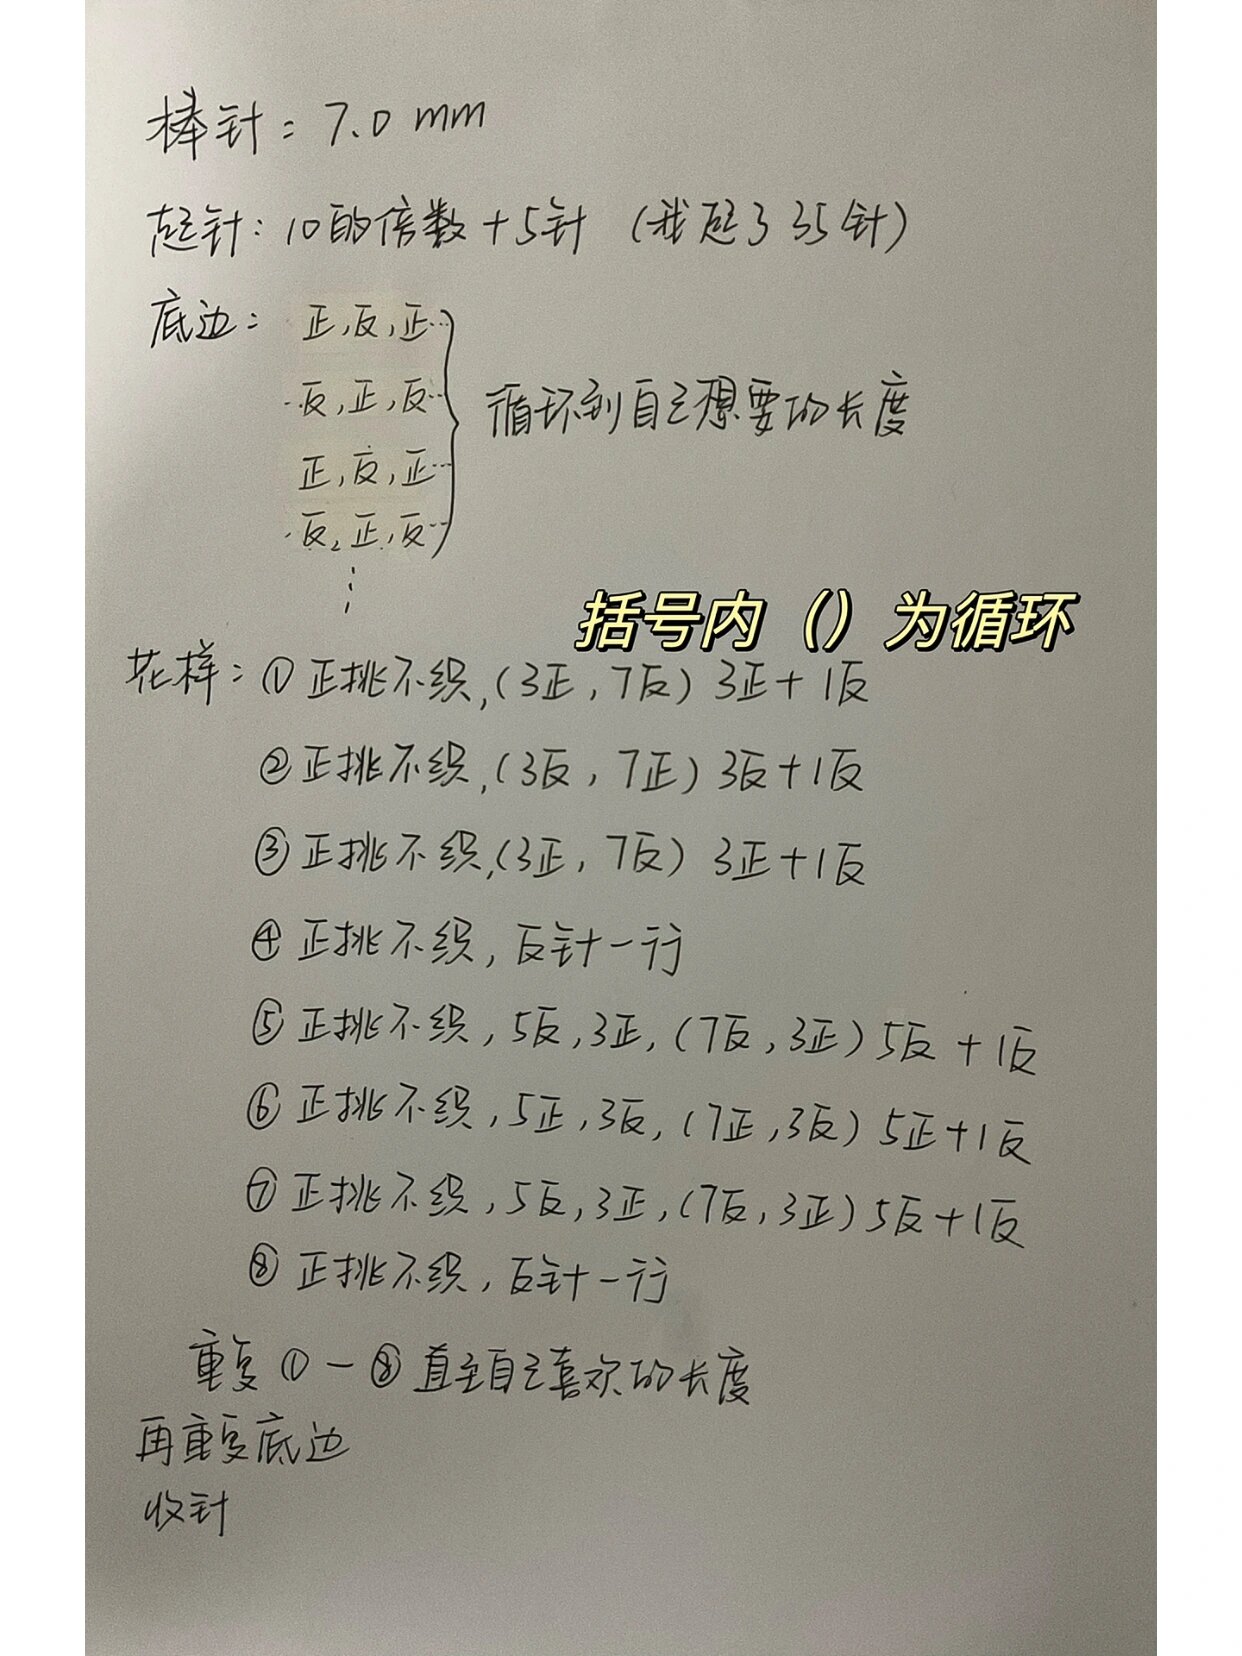 棒针：7.0 mm
起针：10的倍数+5针（我起了35针）
底边：正，反，正…
反，正，反…
循环到自己想要的长度
正，反，正…
反，正，反…
⋮
括号内（）为循环
花样：①正挑不织，（3正，7反）3正+1反
②正挑不织，（3反，7正）3反+1反
③正挑不织，（3正，7反）3正+1反
④正挑不织，反针一行
⑤正挑不织，5反，3正，（7反，3正）5反+1反
⑥正挑不织，5正，3反，（7正，3反）5正+1反
⑦正挑不织，5反，3正，（7反，3正）5反+1反
⑧正挑不织，反针一行
重复①一⑧直至自己喜欢的长度
再重复底边
收针